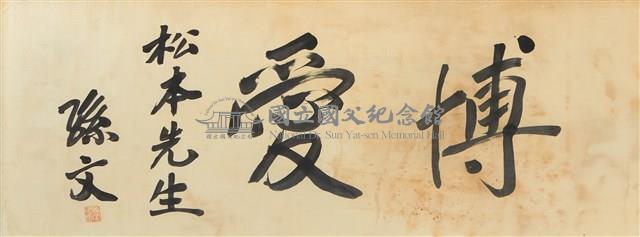 博愛
松本先生
孫文
國立國父紀念館
National Dr. Sun Yat-sen Memorial Hall